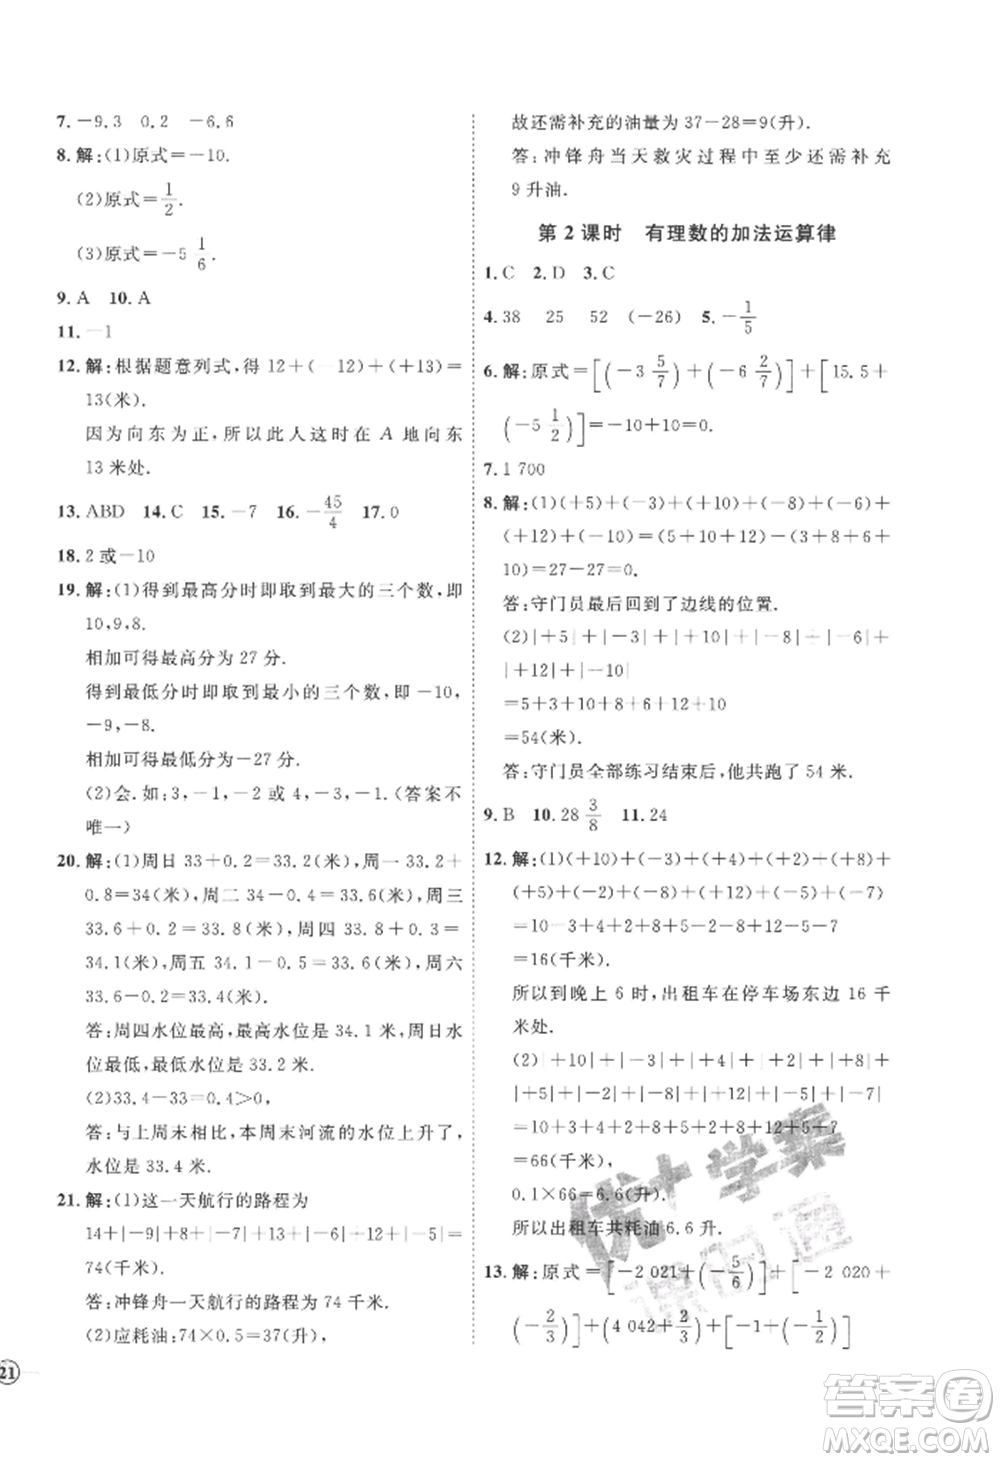 7. －9.3　0.2　－6.6
8. 解:(1)原式=－10.
(2)原式=1/2.
(3)原式=－5 1/6.
9. A　10. A
11. －1
12. 解:根据题意列式,得 12+(－12)+(+13)=
13(米).
因为向东为正,所以此人这时在 A 地向东
13 米处.
13. ABD　14. C　15. －7　16. －45/4　17. 0
18. 2 或－10
19. 解:(1)得到最高分时即取到最大的三个数,即
10,9,8.
相加可得最高分为 27 分.
得到最低分时即取到最小的三个数,即－10,
－9,－8.
相加可得最低分为－27 分.
(2)会.如:3,－1,－2 或 4,－3,－1.(答案不
唯一)
20. 解:(1)周日 33+0.2=33.2(米),周一 33.2+
0.8=34(米),周二 34－0.4=33.6(米),周三
33.6+0.2=33.8(米),周四 33.8+0.3=
34.1(米),周五 34.1－0.5=33.6(米),周六
33.6－0.2=33.4(米).
答:周四水位最高,最高水位是 34.1 米,周日水
位最低,最低水位是 33.2 米.
(2)33.4－33=0.4>0,
答:与上周末相比,本周末河流的水位上升了,
水位是 33.4 米.
21. 解:(1)这一天航行的路程为
14+|－9|+8+|－7|+13+|－6|+12+|－5|=
74(千米).
答:冲锋舟一天航行的路程为 74 千米.
(2)应耗油:74×0.5=37(升),
21
故还需补充的油量为 37－28=9(升).
答:冲锋舟当天救灾过程中至少还需补充
9 升油.
第 2 课时　有理数的加法运算律
1. C　2. D　3. C
4. 38　25　52　(－26)　5. －1/5
6. 解:原式=[(－3 5/7)+(－6 2/7)]+[15.5+
(－5 1/2)]=－10+10=0.
7. 1 700
8. 解:(1)(+5)+(－3)+(+10)+(－8)+(－6)+
(+12)+(－10)=(5+10+12)－(3+8+6+
10)=27－27=0.
答:守门员最后回到了边线的位置.
(2)|+5|+|－3|+|+10|+|－8|+|－6|+
|+12|+|－10|
=5+3+10+8+6+12+10
=54(米).
答:守门员全部练习结束后,他共跑了 54 米.
9. B　10. 28 3/8　11. 24
12. 解:(1)(+10)+(－3)+(+4)+(－2)+(+8)+
(+5)+(－2)+(－8)+(+12)+(－5)+(－7)
=10－3+4－2+8+5－2－8+12－5－7
=16(千米).
所以到晚上 6 时,出租车在停车场东边 16 千
米处.
(2)|+10|+|－3|+|+4|+|－2|+|+8|+
|+5|+|－2|+|－8|+|+12|+|－5|+|－7|
=10+3+4+2+8+5+2+8+12+5+7
=66(千米),
0.1×66=6.6(升).
所以出租车共耗油 6.6 升.
13. 解:原式=[－2 021+(－5/6)]+[－2 020+
(－2/3)]+(4 042+2/3)+[－1+(－1/2)]
优+学案
课时通
答案圈
MXQE.COM